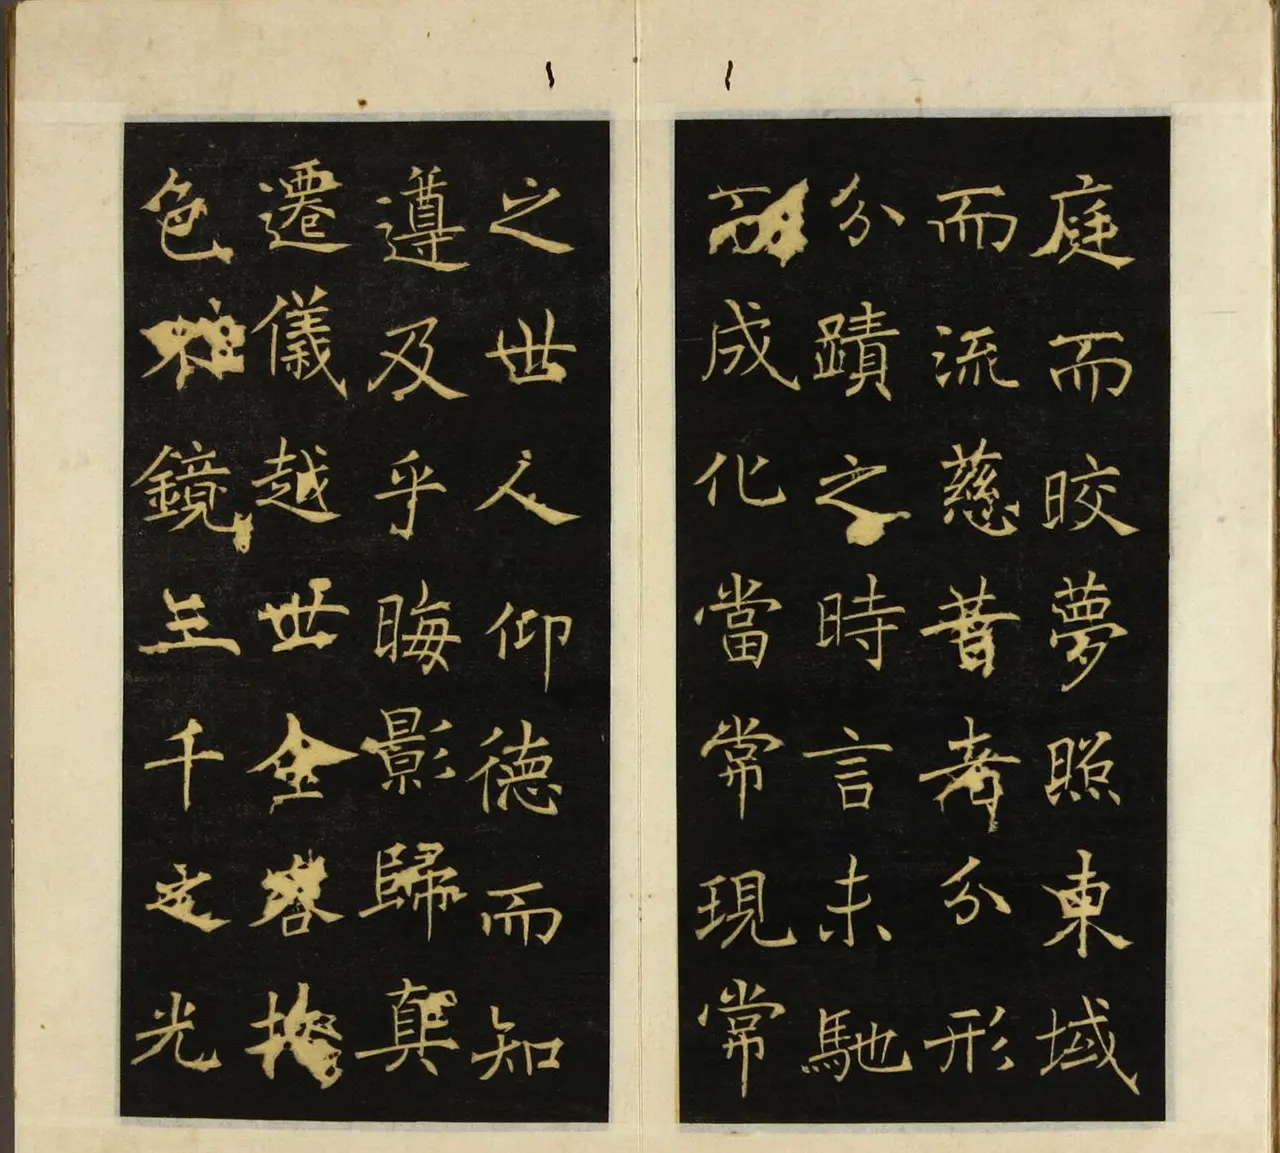 庭而晈夢照東域
而流慈昔者分形
分蹟之時言未馳
而成化當常現常
之世人仰德而知
遵及乎晦影歸真
遷儀越世金容掩
色不鏡三千之光